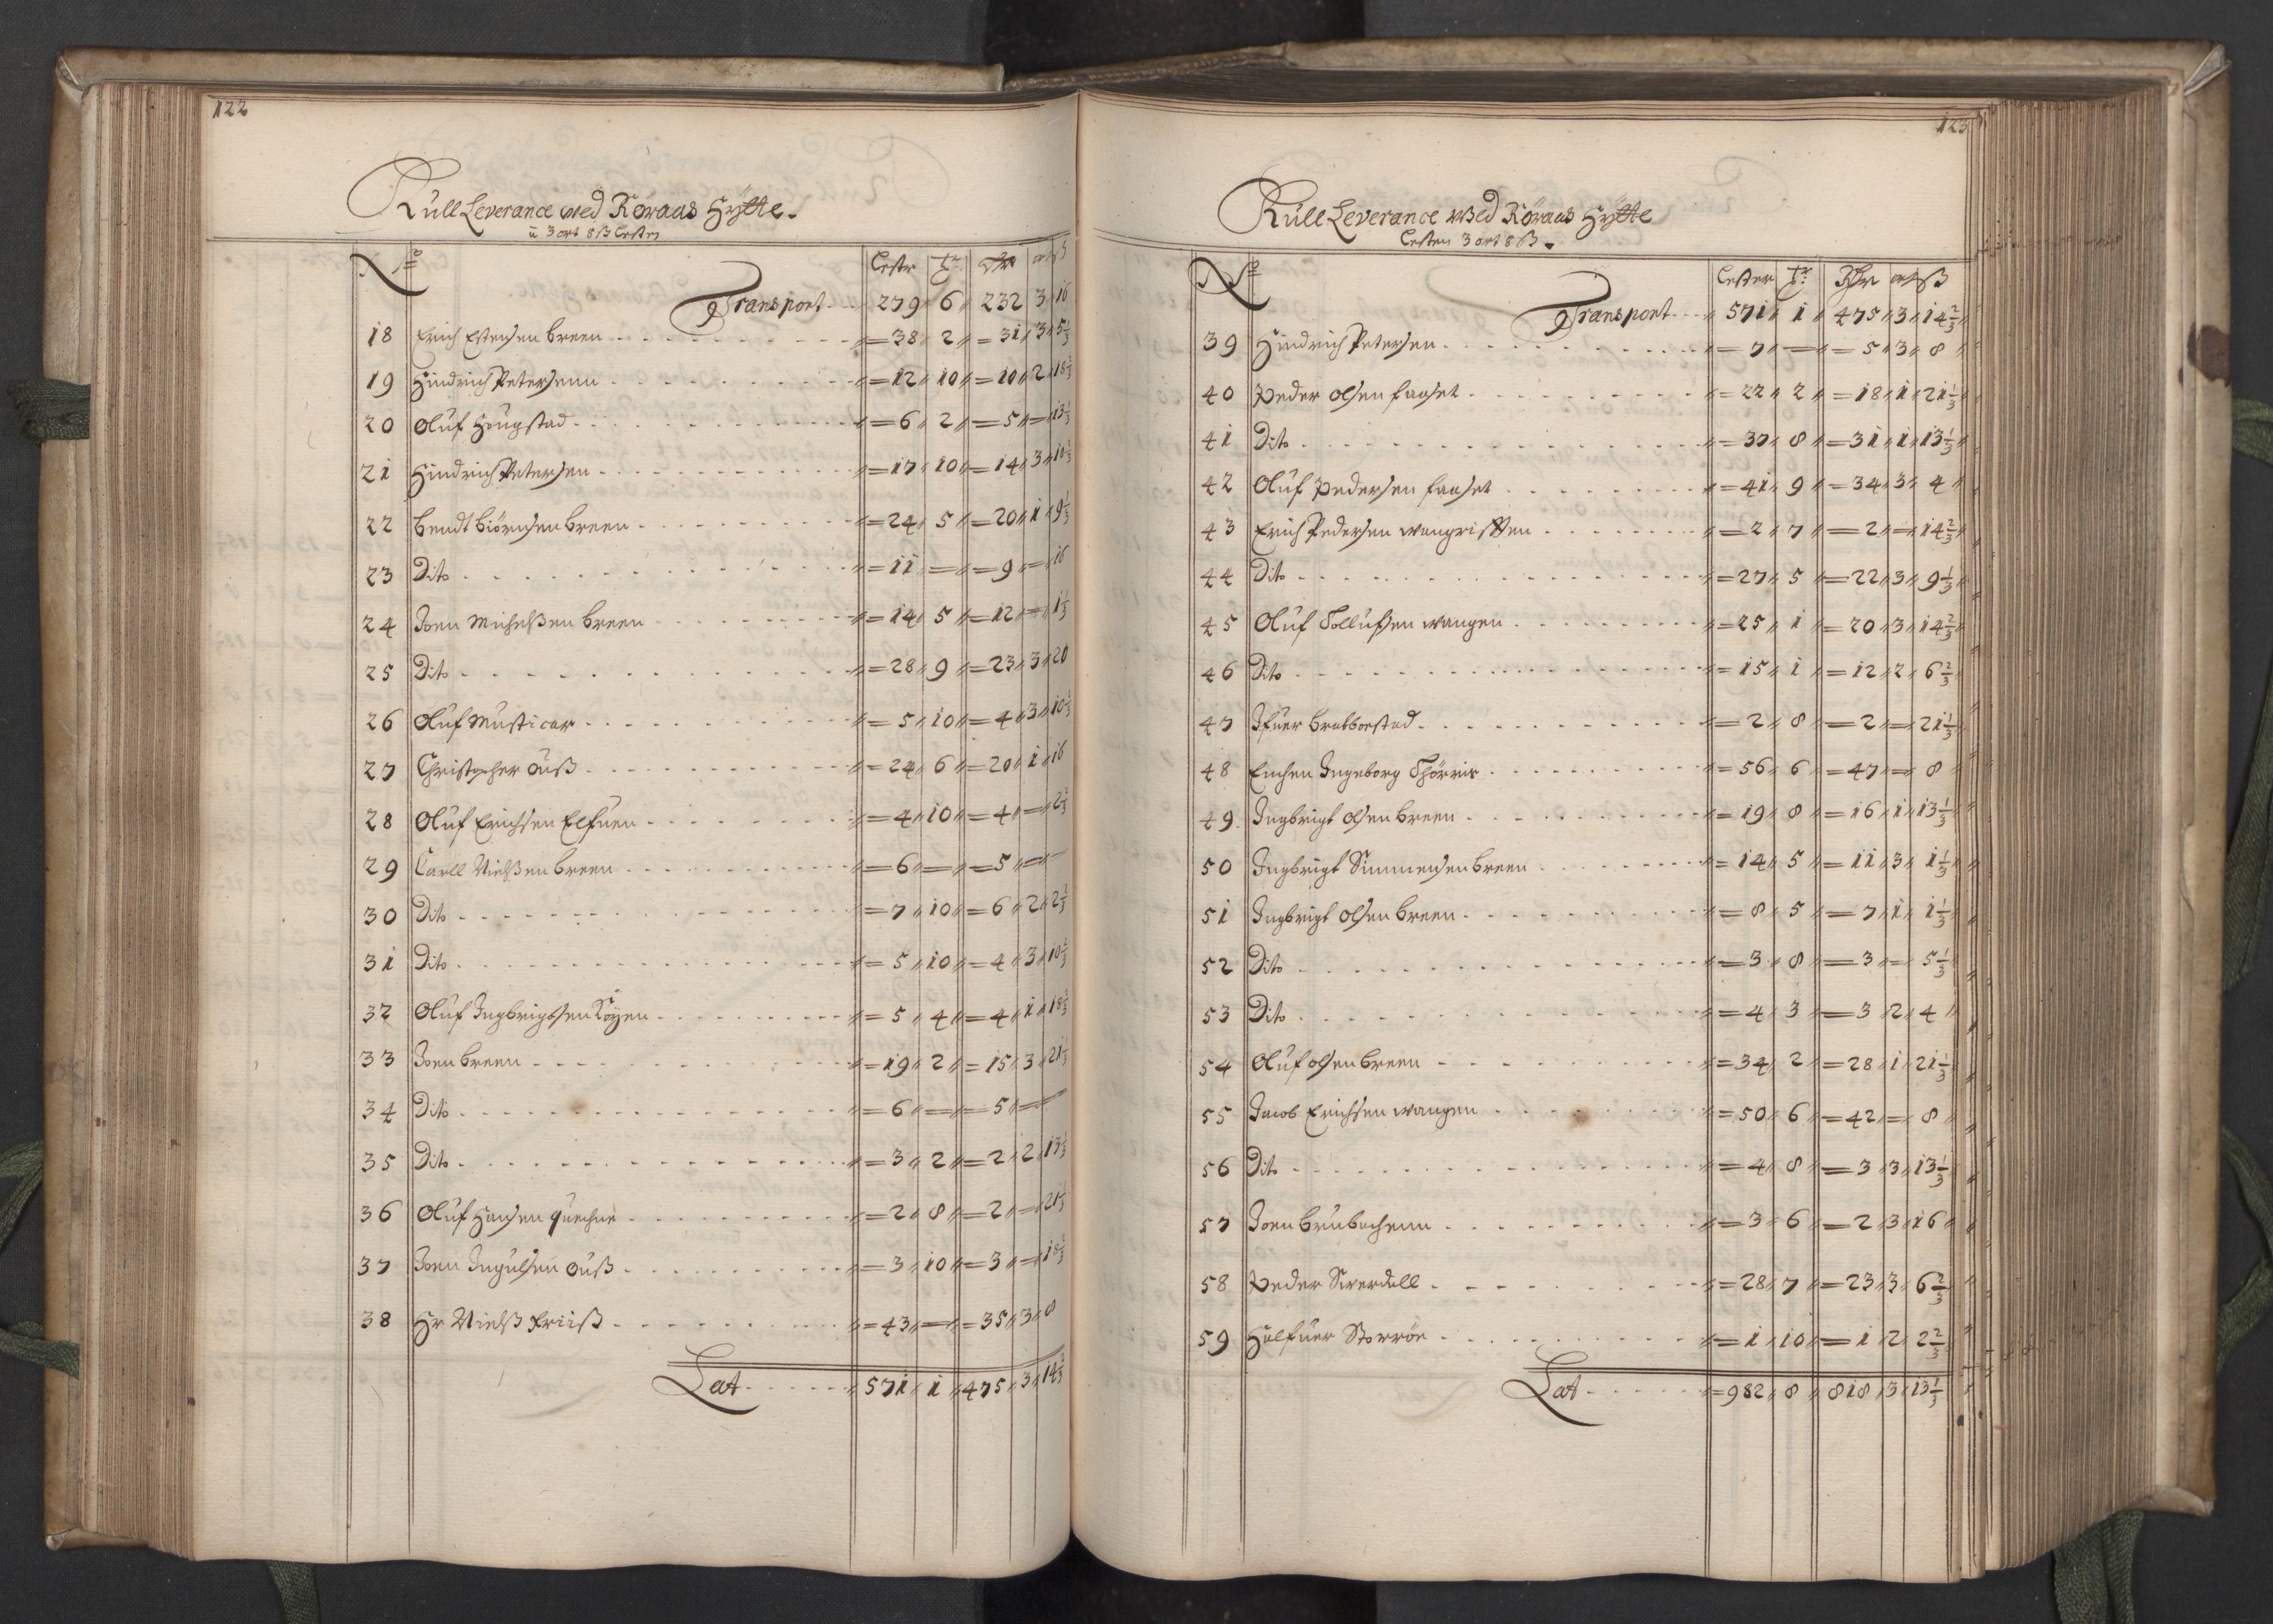 122
Kull Leverance wed Røraas Hytte.
a 3 ort 8 ß Lesten
No Lestr tr Rdr ort ß
Transport 279 6 232 3 16
18 Erich Estensen Breen 38 2 31 3 5 1/3
19 Hindrich Petersenn 12 10 10 2 18 2/3
20 Oluf Hougstad 6 2 5 — 13 1/3
21 Hindrich Petersen 17 10 14 3 10 2/3
22 Bendt Biörnsen Breen 24 5 20 1 9 1/3
23 Dito 11 — 9 — 16
24 Joen Michelßen Breen 14 5 12 — 1 1/3
25 Dito 28 9 23 3 20
26 Oluf Musticar 5 10 4 3 10 2/3
27 Christopher Ouß 24 6 20 1 16
28 Oluf Erichsen Elfuen 4 10 4 — 2 2/3
29 Carll Nielßen Breen 6 — 5 — —
30 Dito 7 10 6 2 2 2/3
31 Dito 5 10 4 3 10 2/3
32 Oluf Ingbrigtsen 5 4 4 1 18 2/3
33 Joen Breen 19 2 15 3 21 1/3
34 Dito 6 — 5 — —
35 Dito 3 2 2 2 13 1/3
36 Oluf Hansen Quechne 2 8 2 — 21 1/3
37 Joen Ingulsen Ouß 3 10 3 — 18 2/3
38 Hr Nielß Friiß 43 — 35 3 8
Lat 571 1 475 3 14 2/3
123
Kull Leverance wed Røraas Hytte
Lesten 3 ort 8 ß.
No Lester tr Rdr ort ß
Transport 571 1 475 3 14 2/3
39 Hindrich Petersen 7 — 5 3 8
40 Peder Olsen Faaset 22 2 18 1 21 1/3
41 Dito 37 8 31 1 13 1/3
42 Oluf Pedersen Faaset 41 9 34 3 4
43 Erich Pedersen Wangrifften 2 7 2 — 14 2/3
44 Dito 27 5 22 3 9 1/3
45 Oluf Tollufsen Wangen 25 1 20 3 14 2/3
46 Dito 15 1 12 2 6 2/3
47 Ifuer Brabborstad 2 8 2 — 21 1/3
48 Enchen Ingeborg Thörris 56 6 47 — 8
49 Ingbrigt Olsen Breen 19 8 16 1 13 1/3
50 Ingbrigt Simmensen Breen 14 5 11 3 1 1/3
51 Ingbrigt Olsen Breen 8 5 7 1 1 1/3
52 Dito 3 8 3 — 5 1/3
53 Dito 4 3 3 2 4
54 Oluf Olsen Breen 34 2 28 1 21 1/3
55 Jacob Erichsen Wangen 50 6 42 — 8
56 Dito 4 8 3 3 13 1/3
57 Joen Brubachenn 3 6 2 3 16
58 Peder Swerdall 28 7 23 3 6 2/3
59 Halfuer Storröe 1 10 1 2 2 2/3
Lat 982 8 818 3 13 1/3